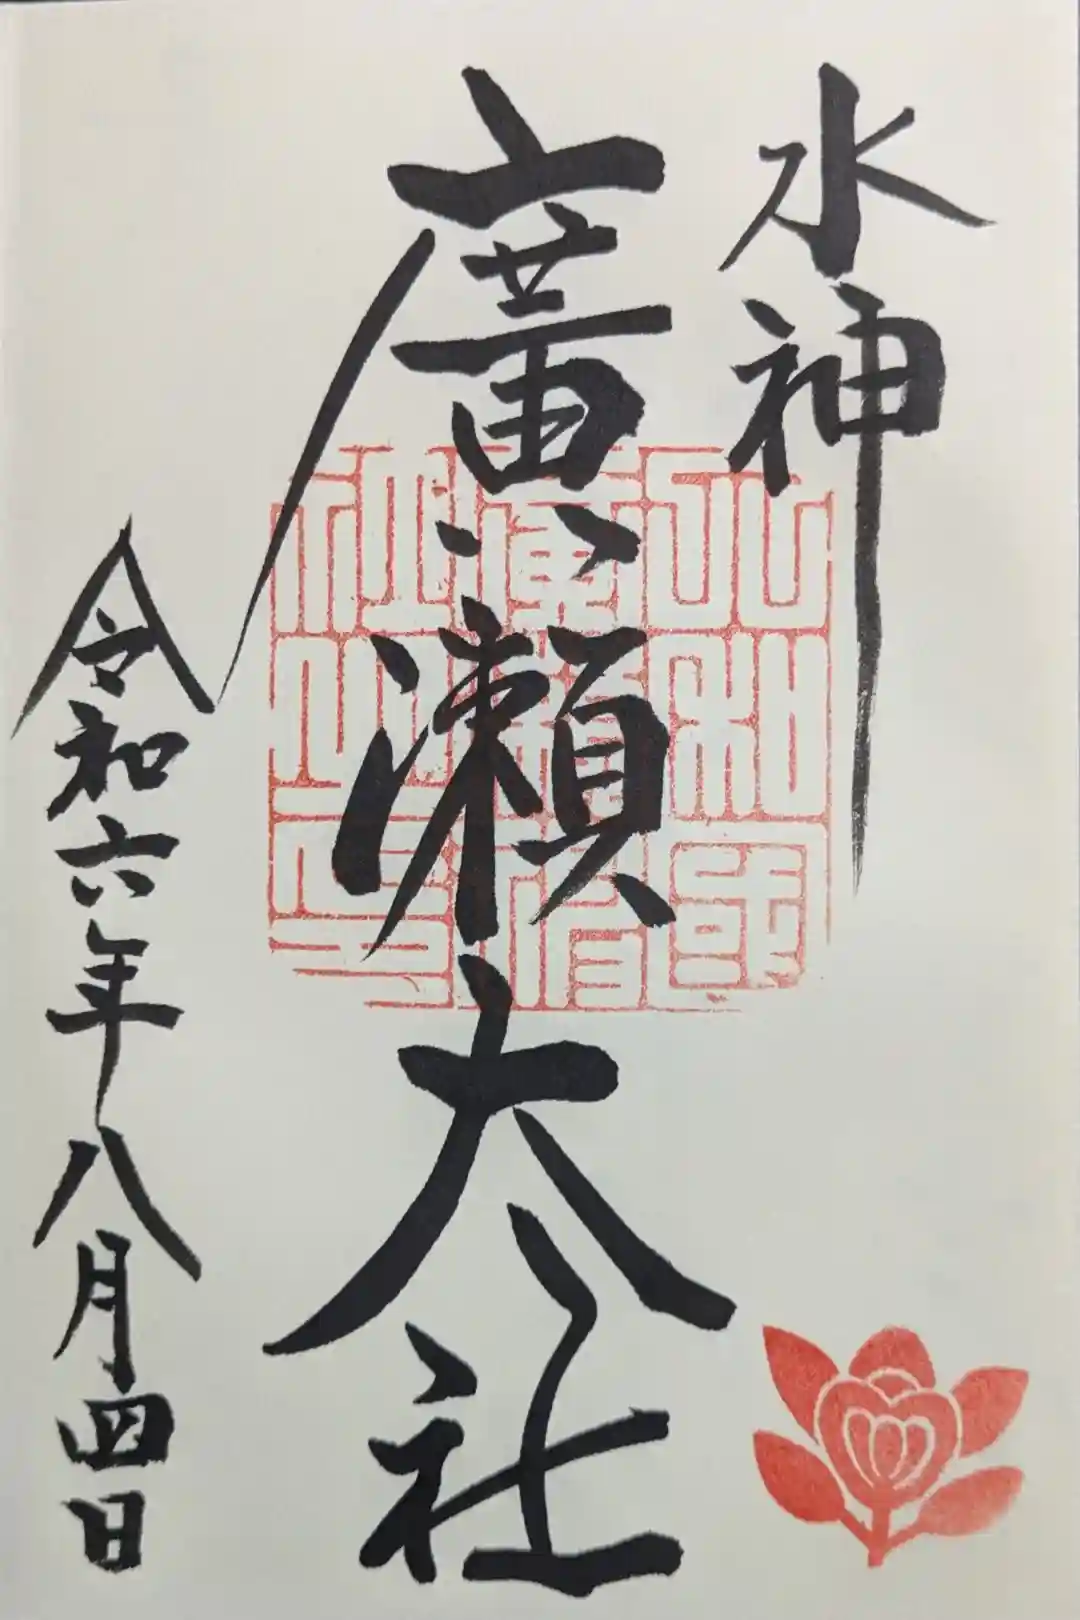 水神
廣瀬大社
令和六年八月四日